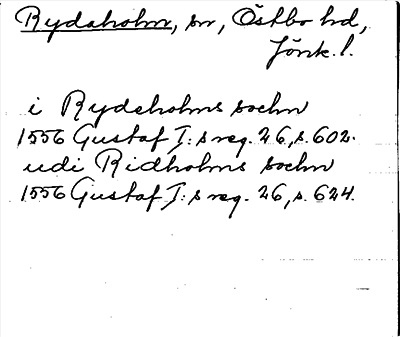 Rydaholm, sn, Östbo hd,
Jönk. l.
i Rydeholms sochn
1556 Gustaf I: s reg. 26, s. 602.
udi Ridholms sochn
1556 Gustaf I: s reg. 26, s. 624.